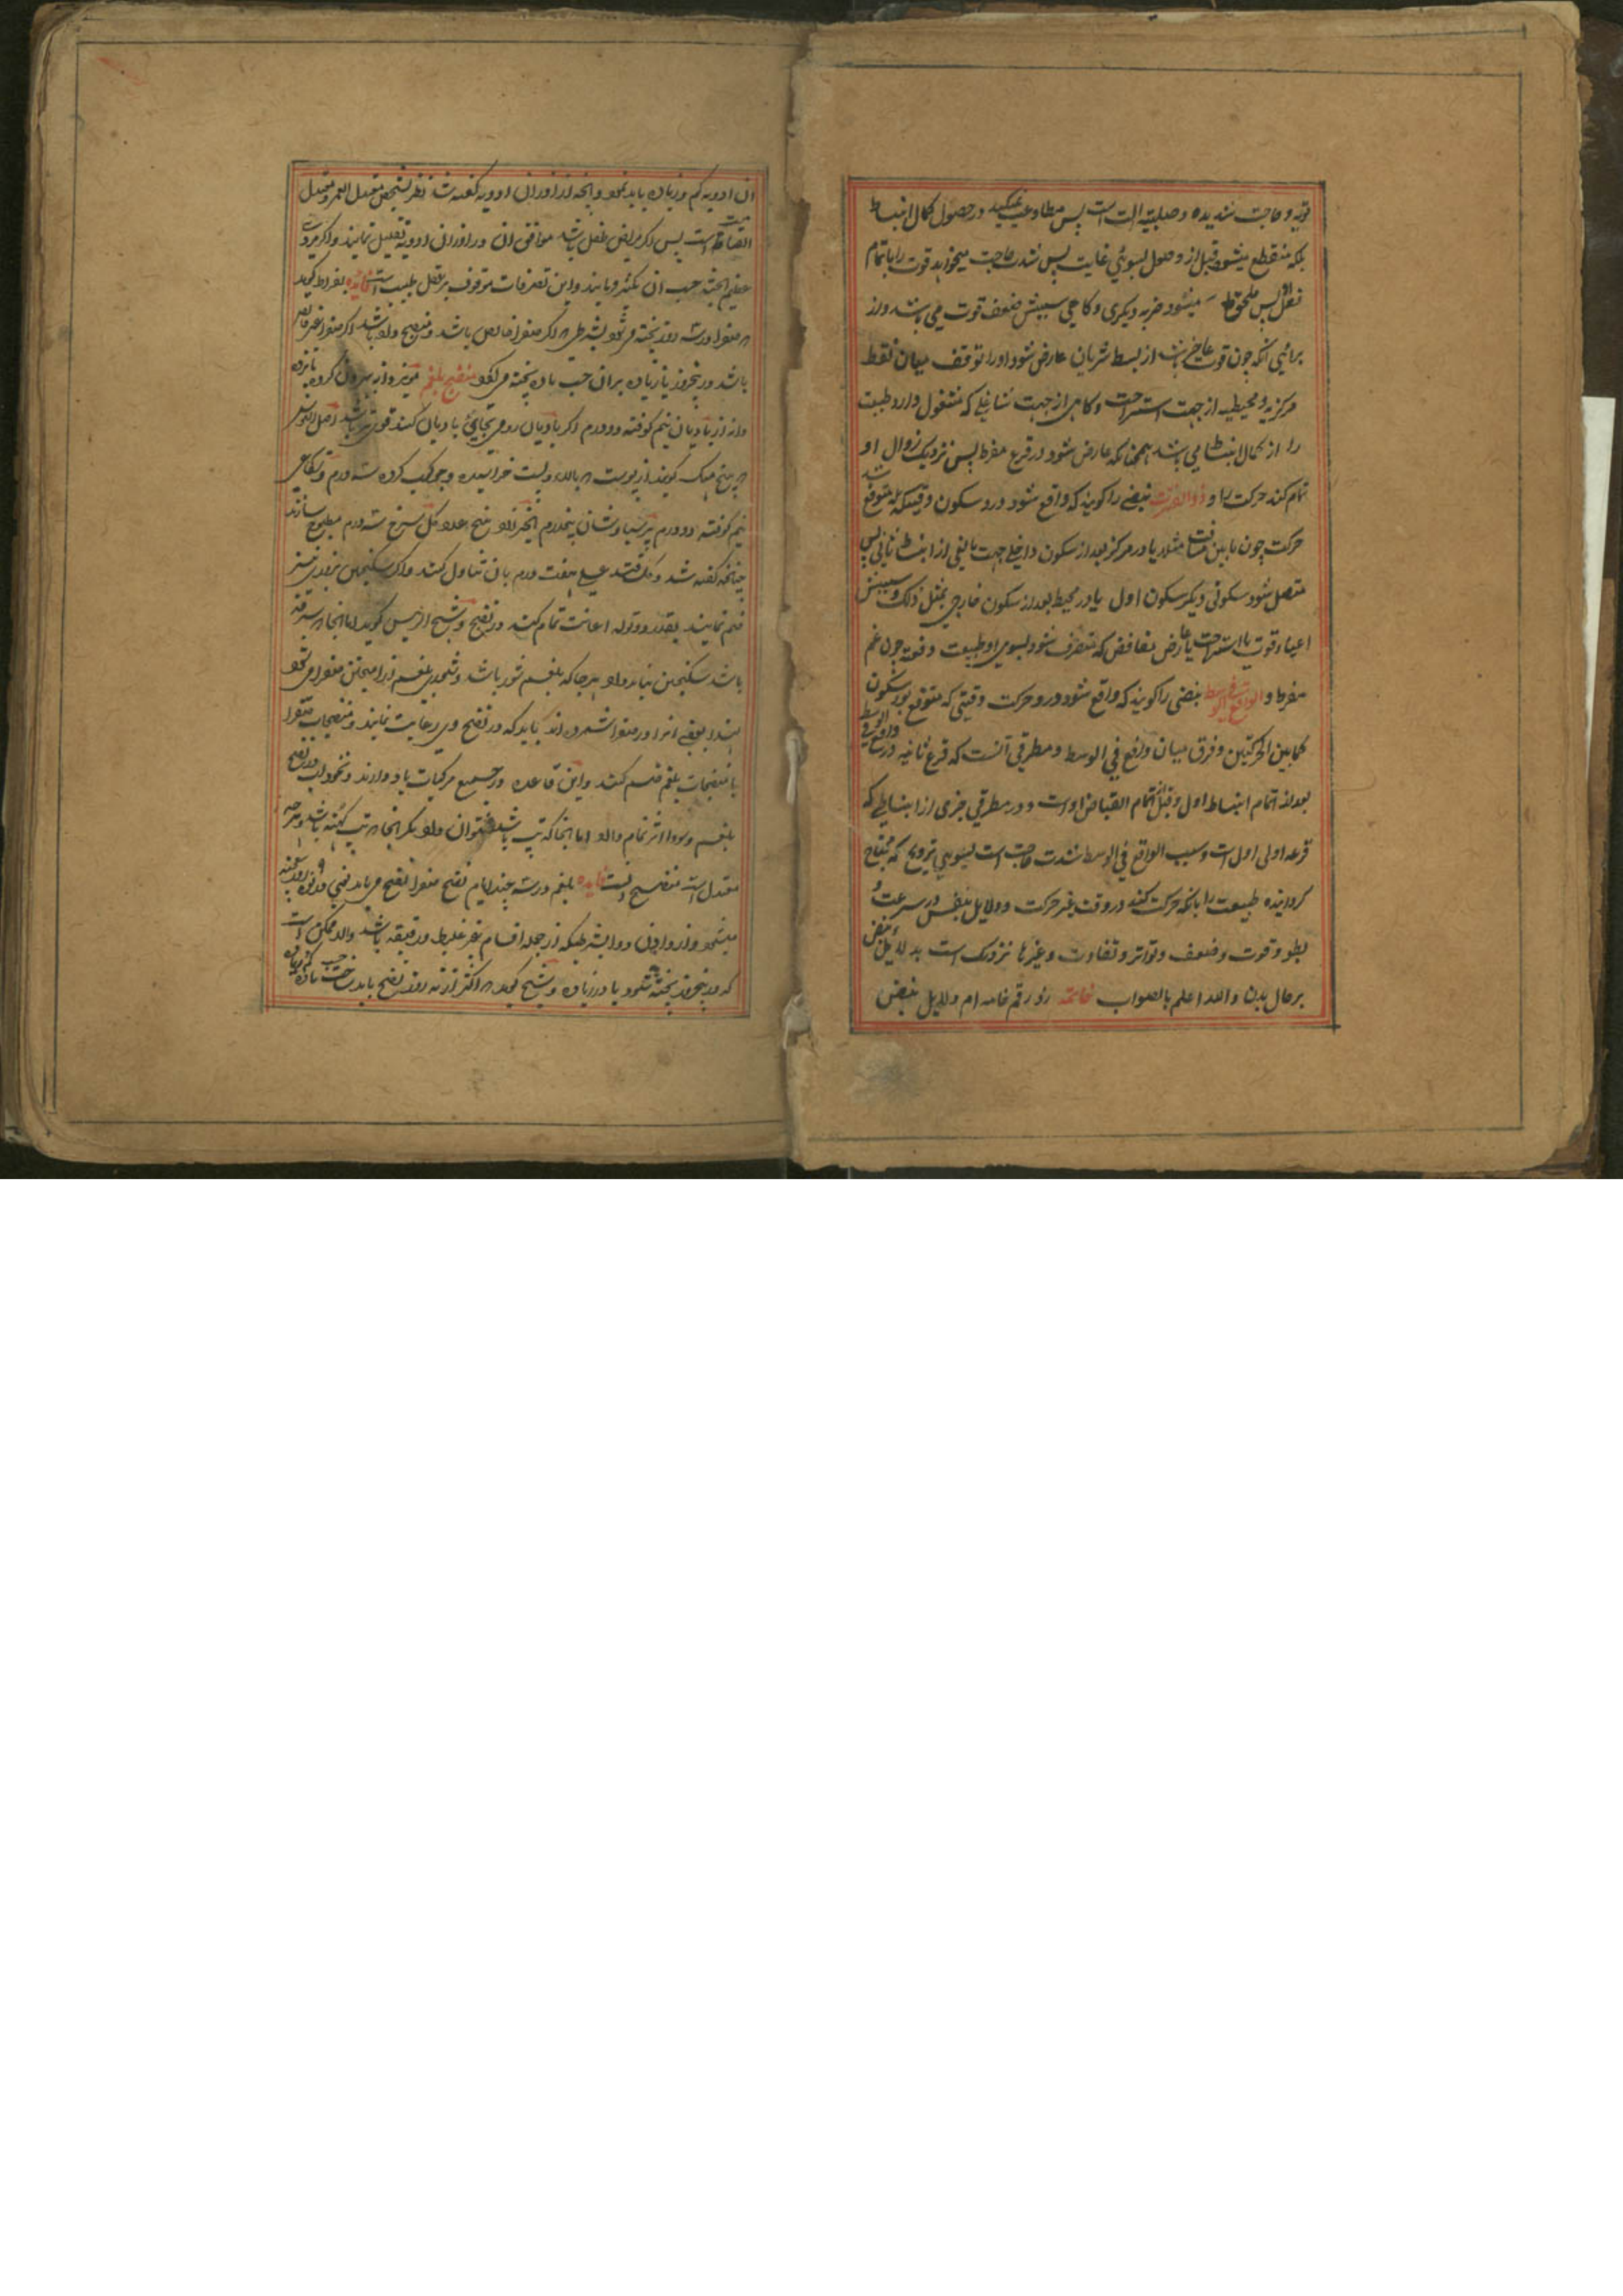 قویه و حاجت شدیده و صلبیة الت است پس مطاوعت نمیکند در حصول کمال انبساط
بلکه منقطع میشود قبل از وصول بسوئی غایت پس شدت حاجت میخواهد قوت را باتمام
فعل پس ملحق میشود ضربه دیکری و کاهی سببش ضعف قوت می باشد و از
برائیی آنکه چون قوت عاجز باشد از بسط شریان عارض شود او را توقف میان نقط
مرکزیه و محیطیه از جهت استراحت و کاهی از جهت شاغلی که مشغول دارد طبیعت
را از کمال انبساط می باشد همچنانکه عارض شود در فزع مفرط پس نزدیک زوال او
تمام کند حرکت را و ذوالفترت نبضی را کویند که واقع شود در و سکون وقتیکه متوقع باشد
حرکت چون مابین مسافت مثلا یا در مرکز بعد از سکون داخلی جهت مانعی از انبساط ثانی پس
متصل شود سکونی دیکر سکون اول یا در محیط بعد از سکون خارجی بمثل ذلک و سببش
اعیاء قوت یا استراحت یا عارض مفاقض که متصرف شود بسوی او طبیعت دفعة چون غم
مفرط و الواقع فی الوسط نبضی را کویند که واقع شود در و حرکت وقتی که متوقع بود سکون
کما بین الحرکتین و فرق میان واقع فی الوسط و مطرقی آنست که قرع ثانیه در واقع فی الوسط
بعد از اتمام انبساط اول و قبل از اتمام انقباض اوست و در مطرقی جزی از انبساطی که
قرعه اولی اول است و سبب الواقع فی الوسط شدت حاجت است بسوی ترویح که محتاج
کرداینده طبیعت را بانکه حرکت کند در وقت غیر حرکت و دلایل نفس در سرعت و
بطو و قوت و ضعف و تواتر و تفاوت و غیرها نزدیک است بدلایل نبض
بر حال بدن والله اعلم بالصواب خاتمه زد رقم خامه ام دلایل نبض
ان ادویه کم و زیاده باید نمود و انچه از اوزان ادویه کفته شد نظر بشخص معتدل العمر و معتدل
است پس اکر مریض طفل باشد موافق ان در اوزان ادویه تقلیل نمایند و اکر مرد
عظیم الجثه حسب ان تکثر فرمایند و این تصرفات موقوف بر عقل طبیب است فایده بقراط کوید
صفرا در سه روز پخته می شود بشرطی اکر صفرا خالص باشد و منضج داده باشد اکر صفرا غیر خالص
باشد در پنجروز یا زیاده بران حسب ماده پخته می کردد منضج بلغم مویز دانه بیرون کرده پانزده
دانه رازیانه نیم کوفته دو درم اکر بادیان رومی بجائی بادیان کنند قوی تر باشد اصل السوس
نیم کوفته دو درم پرسیاوشان پنجدرم انجیر زرد پنج عدد کل سرخ سه درم مطبوخ سازند
چنانچه کفته شد و کلقند عسلی هفت درم بان تناول کنند و اکر سکنجبین بزوری نیز
ضم نمایند بقدر دو توله اعانت تمام کند در نضج و شیخ الرئیس کوید اما انجا سرفه
باشد سکنجبین نباید داد هرجا که بلغم شور باشد
لهذا بعضی انرا در صفرا شمرده اند باید که در نضج وی رعایت نمایند و منضجات صفرا
با منضجات بلغم ضم کنند و این قاعده در جمیع مرکبات یاد دارند
بلغم و سودا اثر تمام دارد اما انجا که تپ باشد نتوان داد مکر انجا تپ کهنه باشد
معتدل است فایده بلغم در سه چند ایام نضج صفرا نضج می یابد یعنی در نه روز پخته
میشود بشرطیکه از جمله اقسام غیر غلیظ و رقیقه باشد والا ممکن است
که در پنجروز پخته شود یا در زیاده و شیخ کوید اکثر از نه روز نضج باید حسب ماده